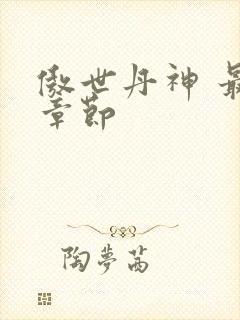 傲世丹神 最
章節
陶夢茜